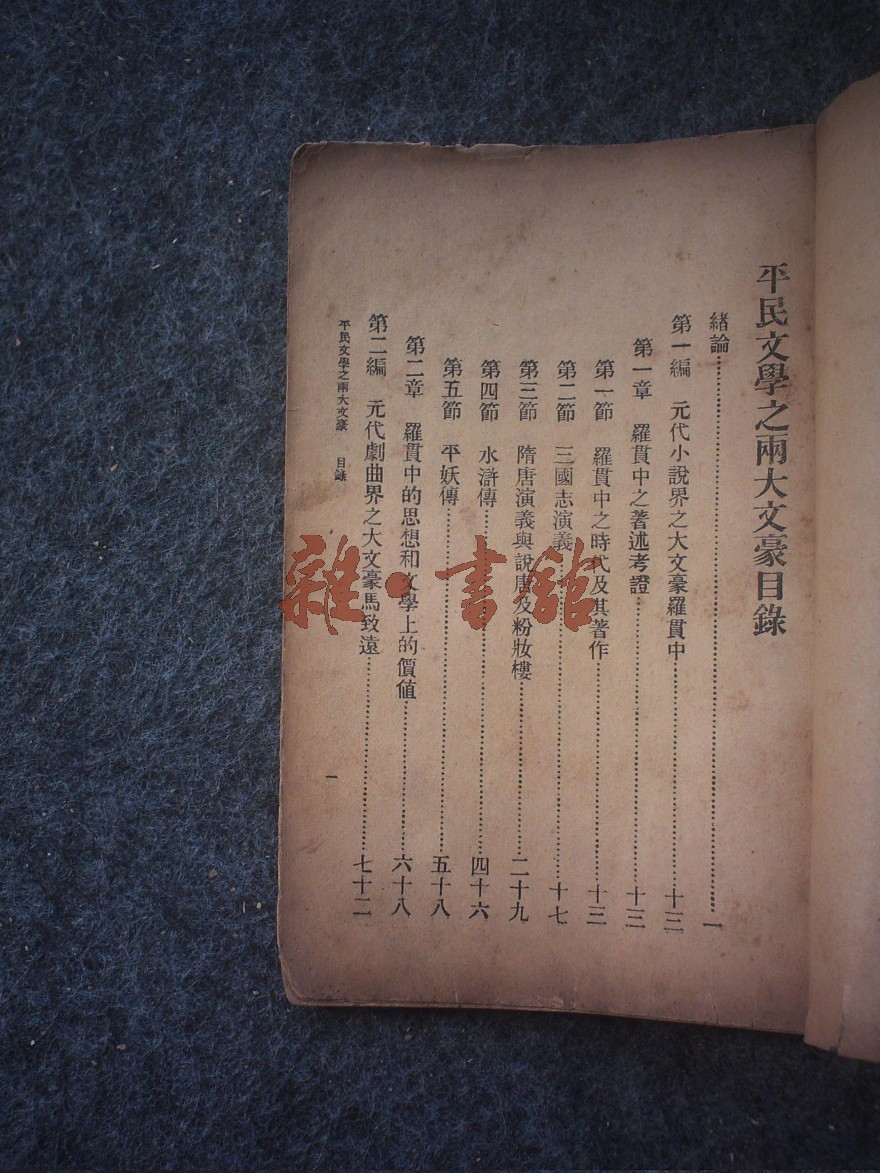 平民文學之兩大文豪目錄
緒論……一
第一編 元代小說界之大文豪羅貫中……十三
第一章 羅貫中之著述考證……十三
第一節 羅貫中之時代及其著作……十三
第二節 三國志演義……十七
第三節 隋唐演義與說唐及粉妝樓……二十九
第四節 水滸傳……四十六
第五節 平妖傳……五十八
第二章 羅貫中的思想和文學上的價值……六十八
第二編 元代劇曲界之大文豪馬致遠……七十二
平民文學之兩大文豪 目錄
一
雜·書館